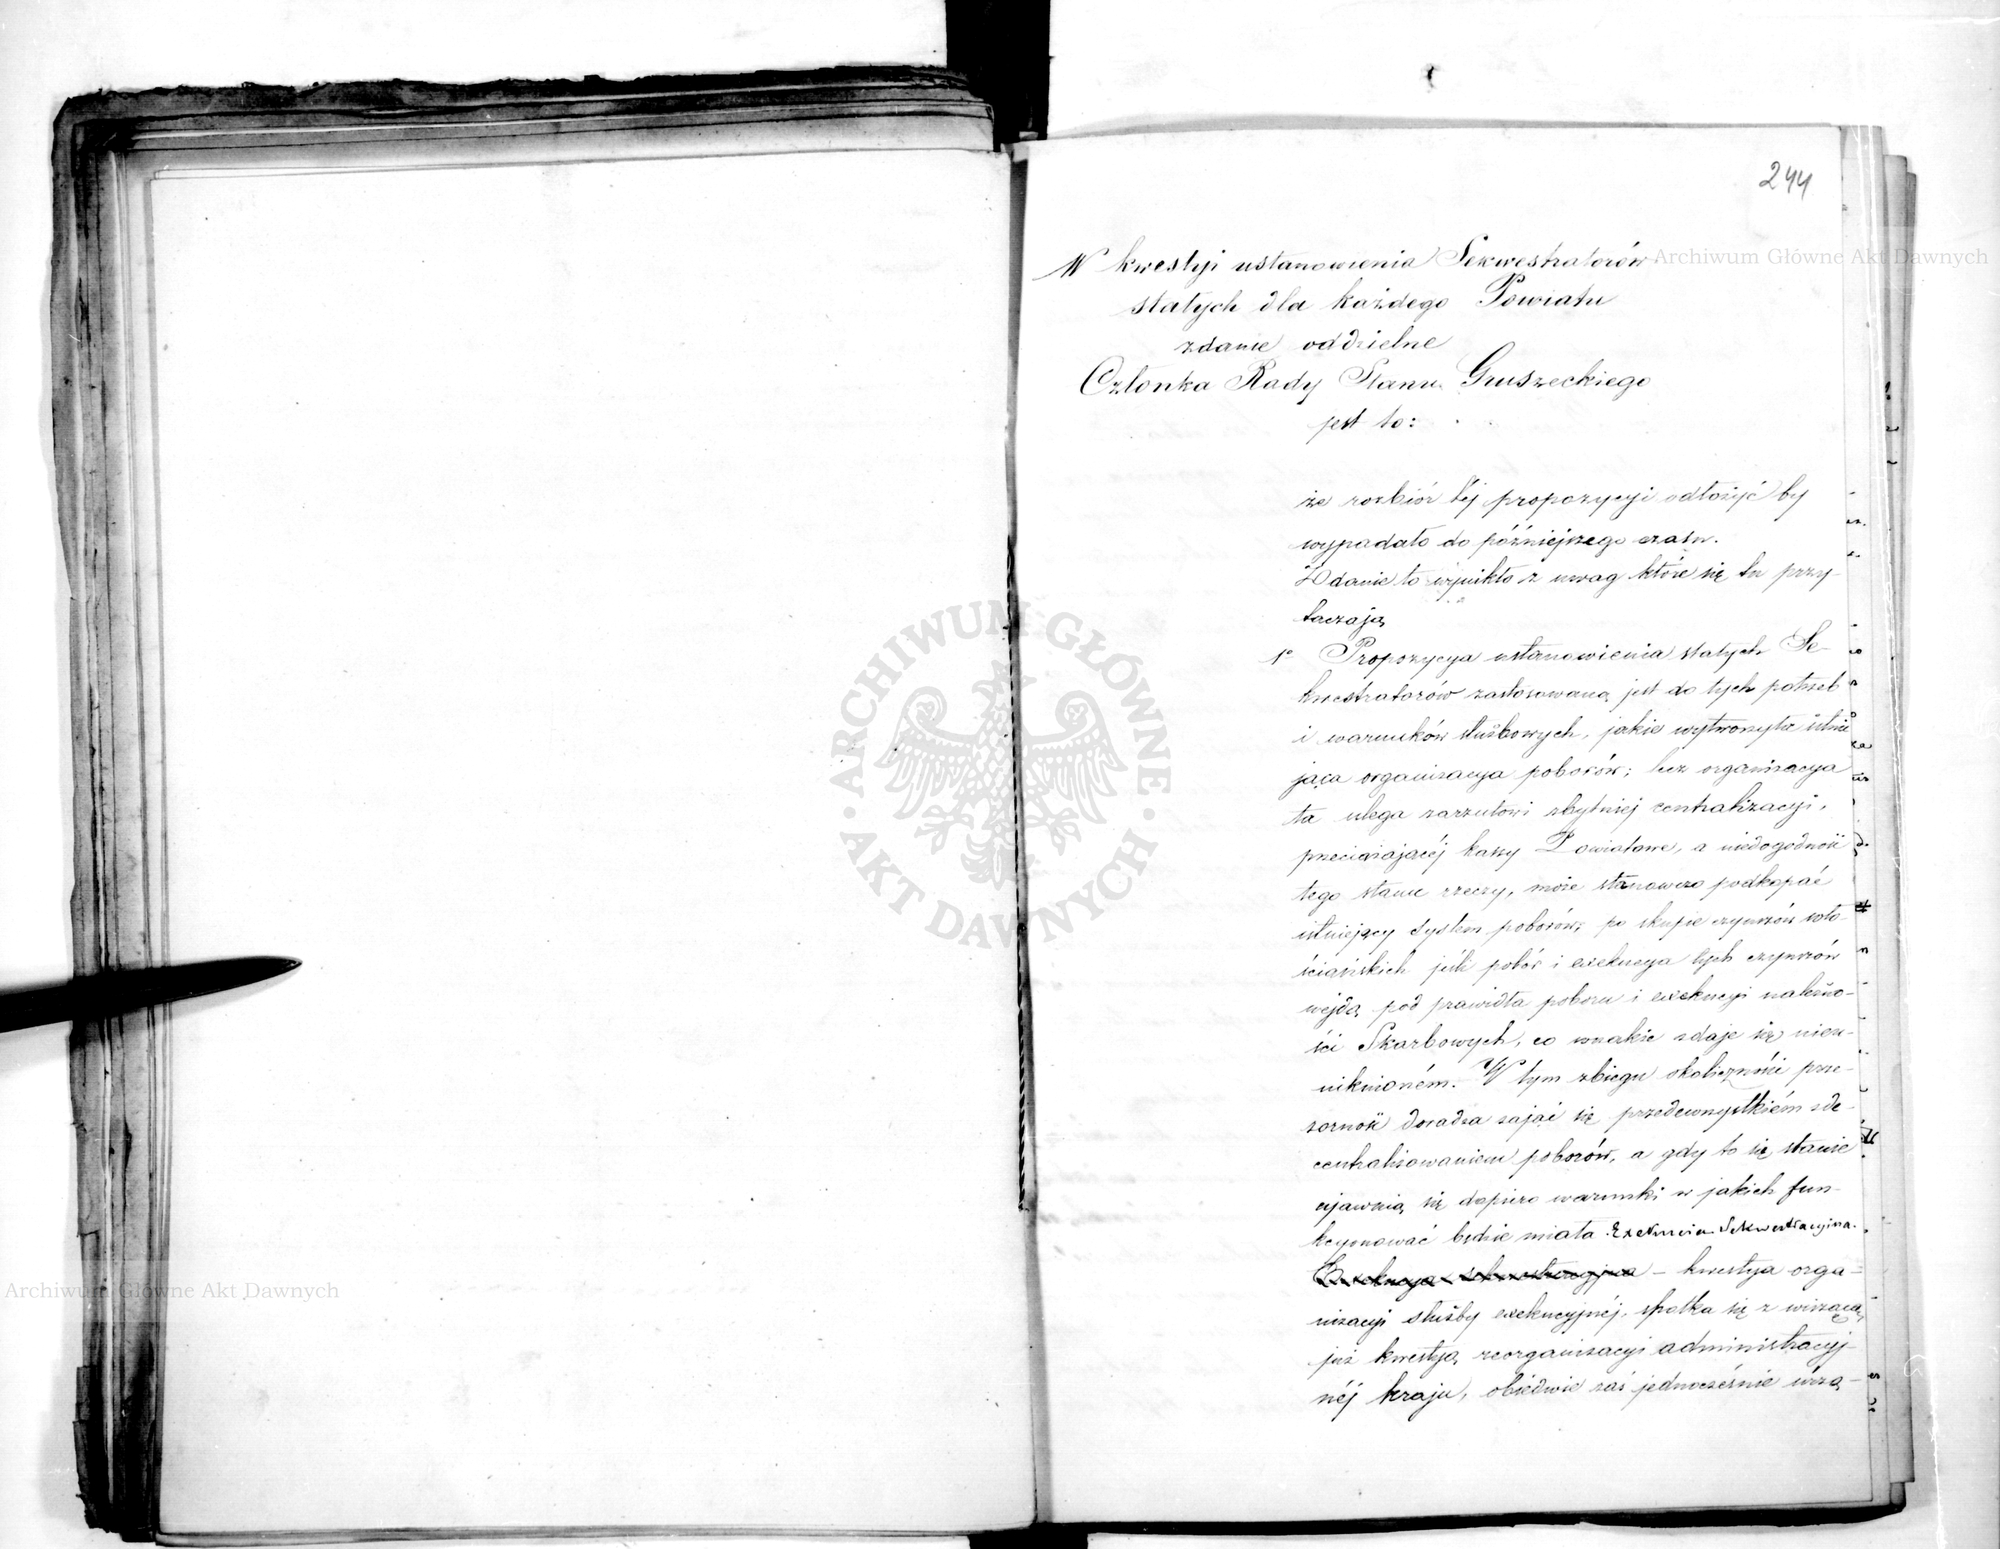 244
W kwestyi ustanowienia Sekwestratorów
stałych dla każdego Powiatu
zdanie oddzielne
Członka Rady Stanu Gruszeckiego
jest to:
że rozbiór téj propozycyi odłożyć by
wypadało do późniejszego czasu.
Zdanie to wynikło z uwag które się tu przy-
taczają
1º Propozycya ustanowienia stałych Se-
kwestratorów zastosowaną jest do tych potrzeb
i warunków służbowych, jakie wytworzyła istnie
jąca organizacya poborów; lecz organizacya
ta ulega zarzutowi zbytniej centralizacyi,
przeciążającéj kassy Powiatowe, a niedogodność
tego stanu rzeczy, może stanowczo podkopać
istniejący system poborów, po skupie czynszów wło-
ściańskich jeśli pobór i exekucya tych czynszów
wejdą pod prawidła poboru i exekucyi należno-
ści Skarbowych, co wszakże zdaje się nieu-
niknioném. W tym zbiegu okoliczności prze-
zorność doradza zająć się przedewszystkiém zde-
centralizowaniem poborów, a gdy to się stanie
ujawnią się dopiero warunki w jakich fun-
kcyonować będzie miała Exekucia Sekwestracyjna.
Exekucya sekwestracyjna - kwestya orga-
nizacyi służby exekucyjnéj, spotka się z wiszącą
już kwestyą reorganizacyi administracyj-
néj kraju, obiedwie zaś jednocześnie
Archiwum Główne Akt Dawnych
ARCHIWUM GŁÓWNE · AKT DAWNYCH ·
Archiwum Główne Akt Dawnych